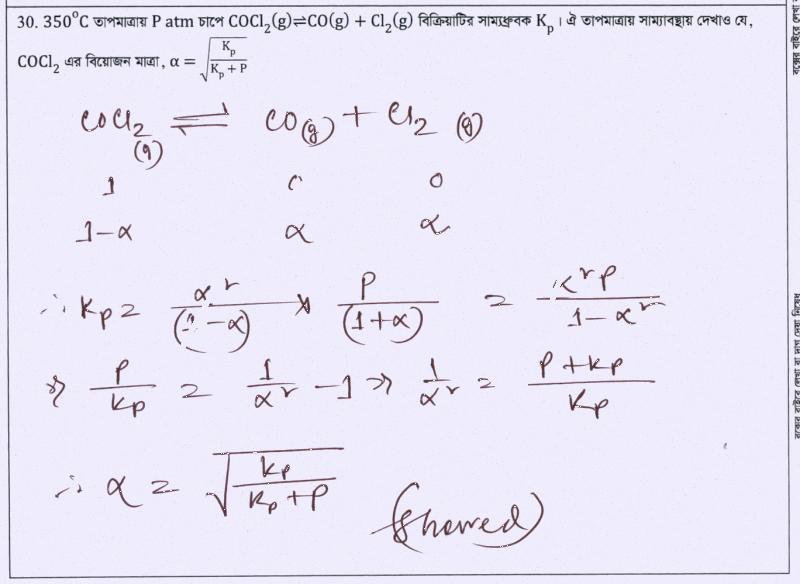 30. 350°C তাপমাত্রায় P atm চাপে COCl₂(g)⇌CO(g) + Cl₂(g) বিক্রিয়াটির সাম্যধ্রুবক Kₚ। ঐ তাপমাত্রায় সাম্যাবস্থায় দেখাও যে,
COCl₂ এর বিয়োজন মাত্রা, α = √(Kₚ/(Kₚ + P))
COCl₂(g) ⇌ CO(g) + Cl₂(g)
1 0 0
1-α α α
∴ Kp = α²/(1-α) × P/(1+α) = α²P/(1-α²)
⇒ P/Kp = 1/α² - 1 ⇒ 1/α² = (P+Kp)/Kp
∴ α = √(Kp/(Kp+P))
(Showed)